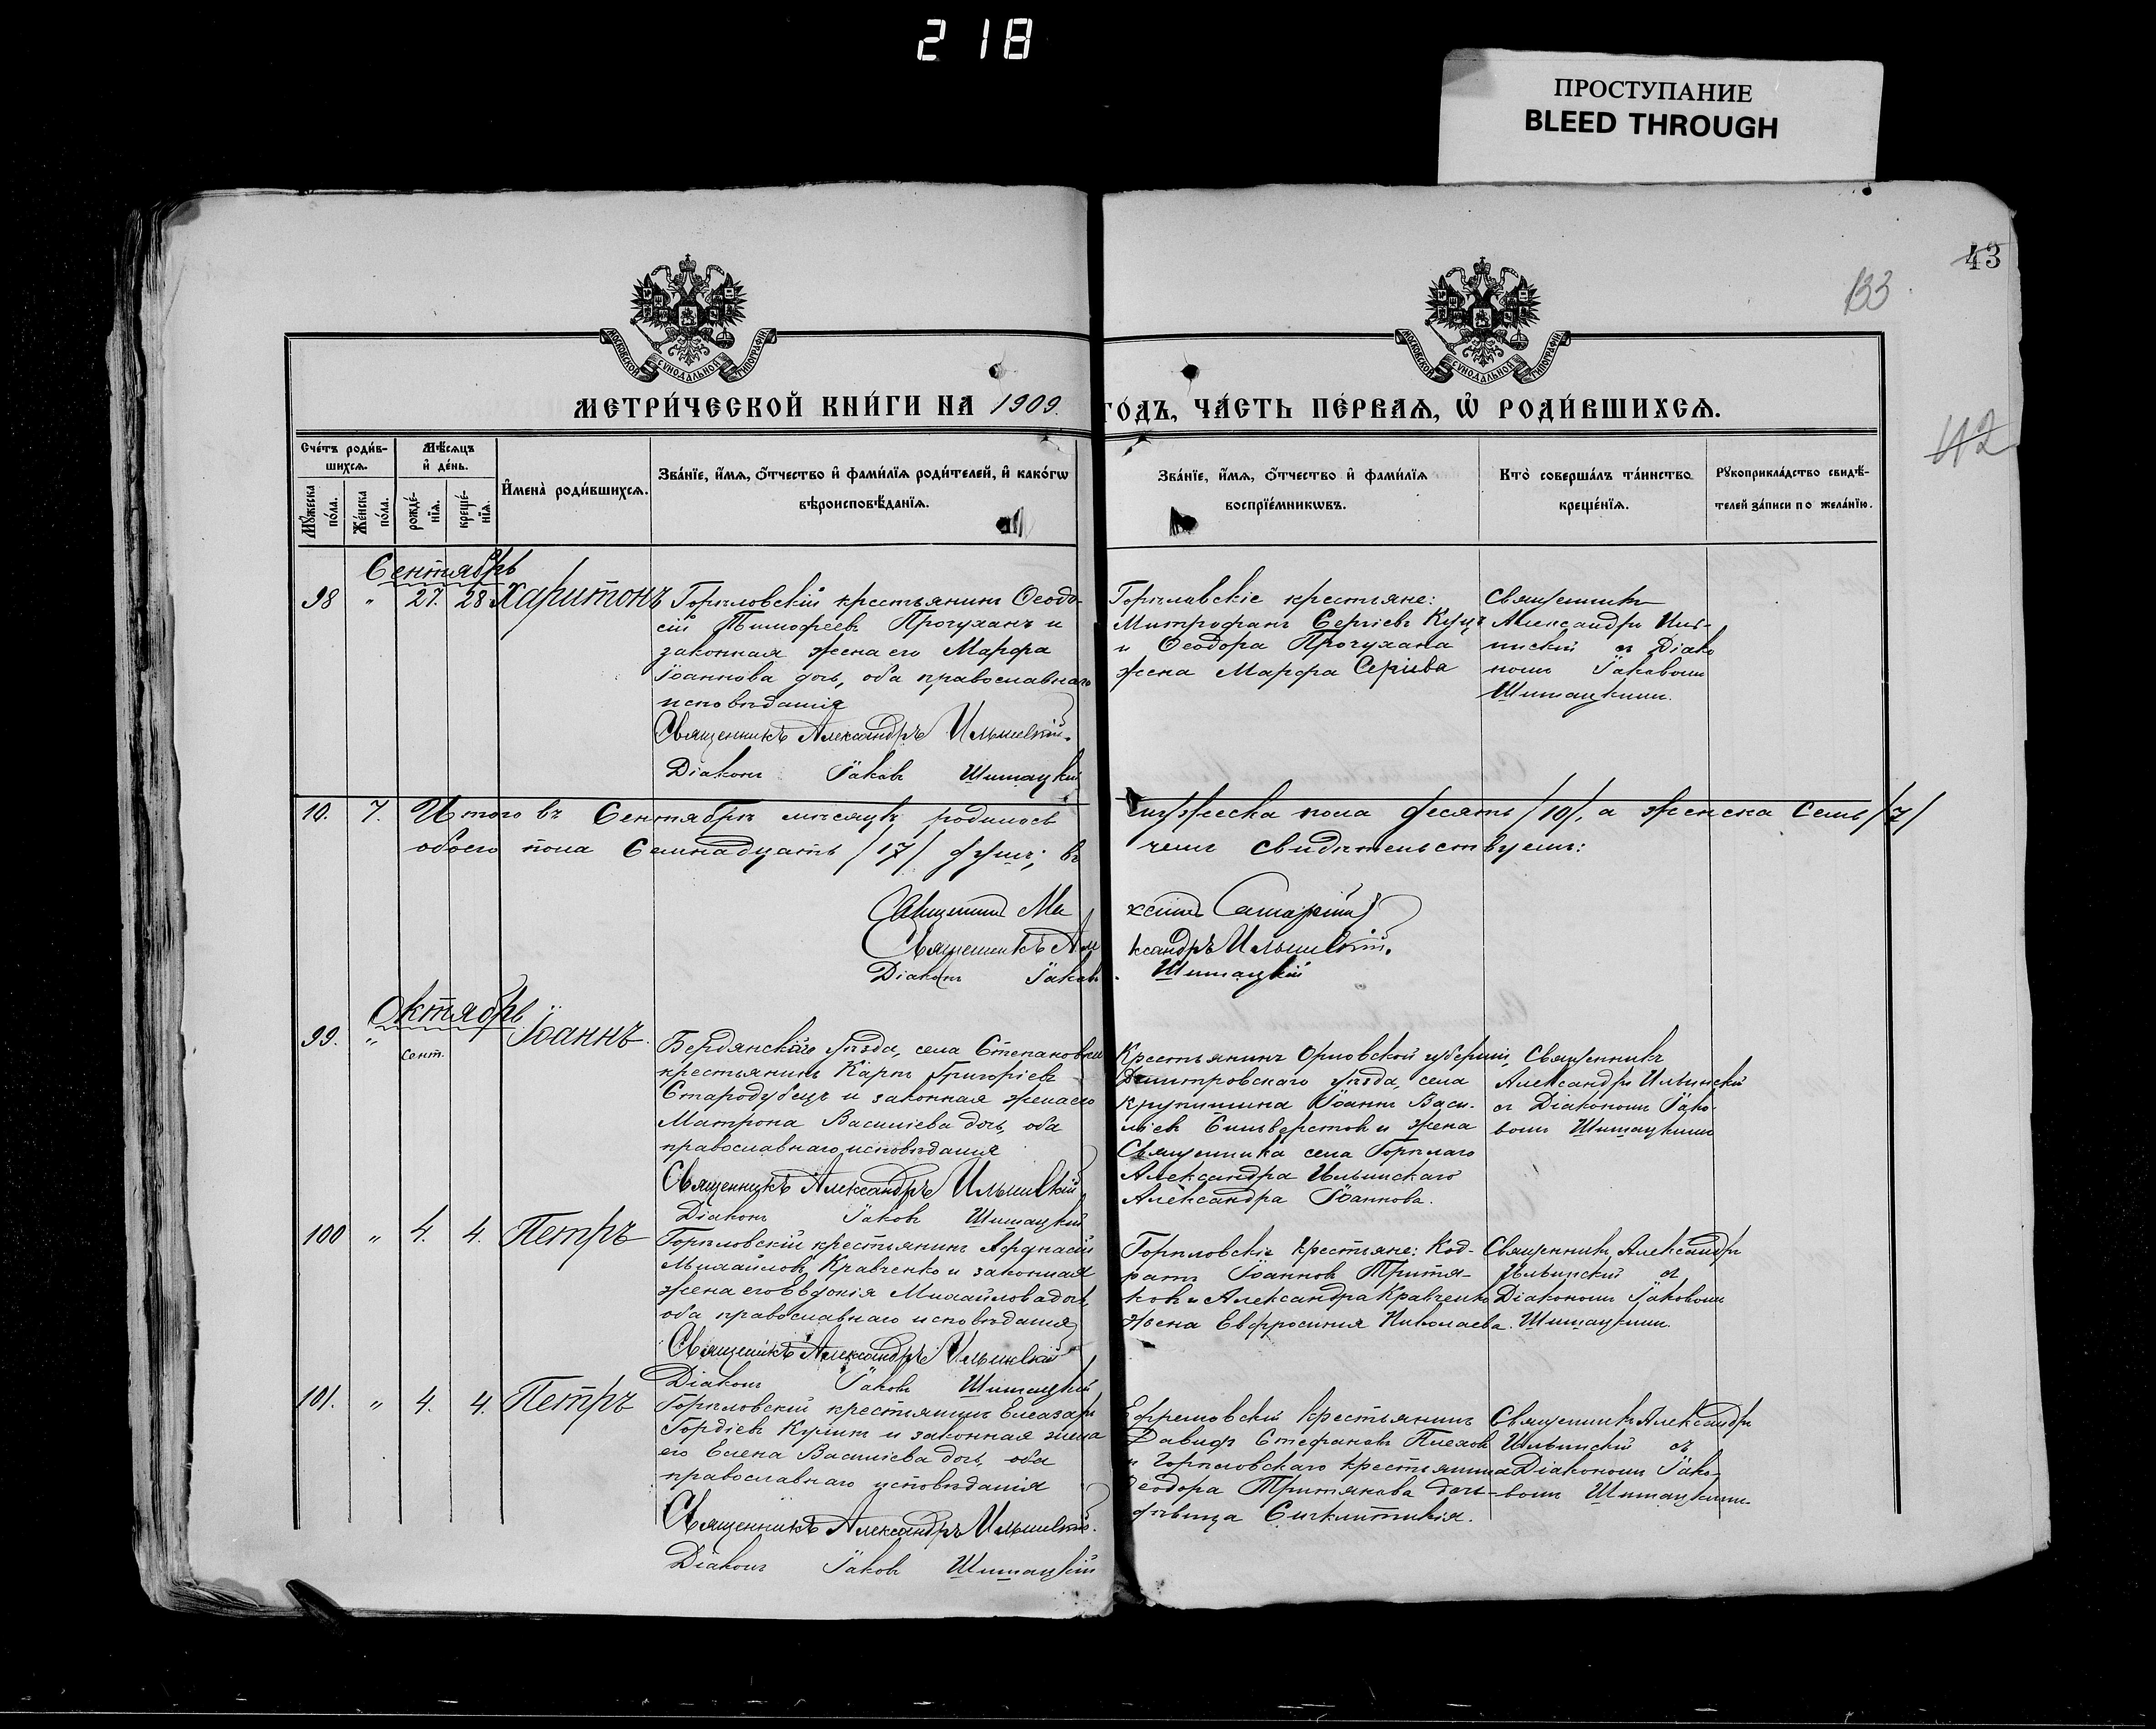 218
ПРОСТУПАНИЕ
BLEED THROUGH
43
133
112
МОСКОВСКОЙ СУНОДАЛЬНОЙ ТИПОГРАФІИ
МОСКОВСКОЙ СУНОДАЛЬНОЙ ТИПОГРАФІИ
МЕТРИ́ЧЕСКОЙ КНИ́ГИ НА 1909. ГО́ДЪ, ЧА́СТЬ ПЕ́РВАѦ, Ѡ҆ РОДИ́ВШИХСѦ.
Сче́тъ роди́в-
шихсѧ.
Мꙋ́жеска по́ла.
Же́нска по́ла.
Мѣ́сѧцъ и҆ де́нь.
рожде́-нїѧ.
креще́-нїѧ.
И҆мена̀ роди́вшихсѧ.
Зва́нїе, и҆́мѧ, ѻ҆́тчество и҆ фами́лїѧ роди́телей, и҆ како́гѡ
вѣроисповѣ́данїѧ.
Зва́нїе, и҆́мѧ, ѻ҆́тчество и҆ фами́лїѧ
воспрїе́мникѡвъ.
Кто̀ соверша́лъ та́инство
креще́нїѧ.
Рꙋкоприкла́дство свидѣ́-
телей за́писи по жела́нїю.
Сентябрь
98 " 27. 28. Харитонъ
Горѣловскій крестьянинъ Ѳеодо-
сій Тимоѳеевъ Прочуханъ и
законная жена его Марѳа
Іоаннова дочь, оба православнаго
исповѣданія
Священникъ Александръ Ильинскій.
Діаконъ Іаковъ Шишацкій
Горѣлавскіе крестьяне:
Митрофанъ Сергіевъ Куцъ
и Ѳеодора Прочухана
жена Марѳа Сергіева
Священникъ
Александръ Иль-
инскій съ Діако
номъ Іаковомъ
Шишацкимъ.
10. 7. Итого въ Сентябрѣ мѣсяцѣ родилось мужеска пола десять /10/, а женска семь /7/
обоего пола Семнадцать /17/ душъ; въ чемъ свидѣтельствуемъ:
Священникъ Александръ Ильинскій.
Діаконъ Іаковъ Шишацкій
Октябрь
99. " Сент. Іоаннъ.
Бердянскаго уѣзда, села Степановки
крестьянинъ Карпъ Григоріевъ
Стародубецъ и законная жена его
Матрона Василіева дочь, оба
православнаго исповѣданія
Священникъ Александръ Ильинскій
Діаконъ Іаковъ Шишацкій
Крестьянинъ Орловской губерніи,
Дмитровскаго уѣзда, села
Крупышина Іоаннъ Васи-
ліевъ Сильверстовъ и жена
Священника села Горѣлаго
Александра Ильинскаго
Александра Іоаннова.
Священникъ
Александръ Ильинскій
съ Діакономъ Іако-
вомъ Шишацкимъ
100 " 4. 4. Петръ
Горѣловскій крестьянинъ Аѳанасій
Михайловъ Кравченко и законная
жена его Евдокія Михайлова дочь,
оба православнаго исповѣданія
Священникъ Александръ Ильинскій
Діаконъ Іаковъ Шишацкій
Горѣловскіе крестьяне: Код-
ратъ Іоанновъ Притя-
ковъ и Александра Кравченко
жена Евфросинія Николаева.
Священникъ Александръ
Ильинскій съ
Діакономъ Іаковомъ
Шишацкимъ.
101. " 4. 4. Петръ
Горѣловскій крестьянинъ Елеазаръ
Гордіевъ Кулитъ и законная жена
его Елена Василіева дочь, оба
православнаго исповѣданія
Священникъ Александръ Ильинскій.
Діаконъ Іаковъ Шишацкій
Ефремовскій крестьянинъ
Давидъ Стефановъ Плеховъ
и Горѣловскаго крестьянина
Ѳеодора Притякова дочь-
дѣвица Сигклитикія.
Священникъ Александръ
Ильинскій съ
Діакономъ Іако-
вомъ Шишацкимъ.